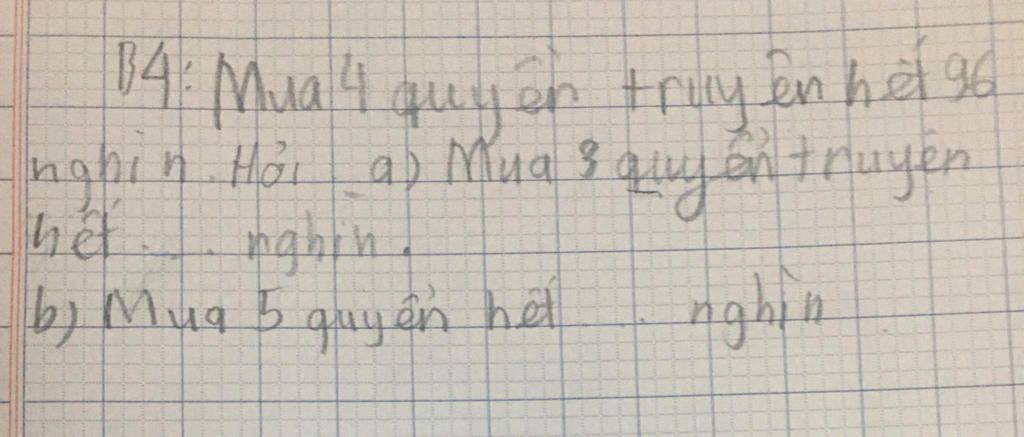 B4: Mua 4 quyển truyện hết 96
nghìn. Hỏi a) Mua 3 quyển truyện
hết ... nghìn.
b) Mua 5 quyển hết . nghìn